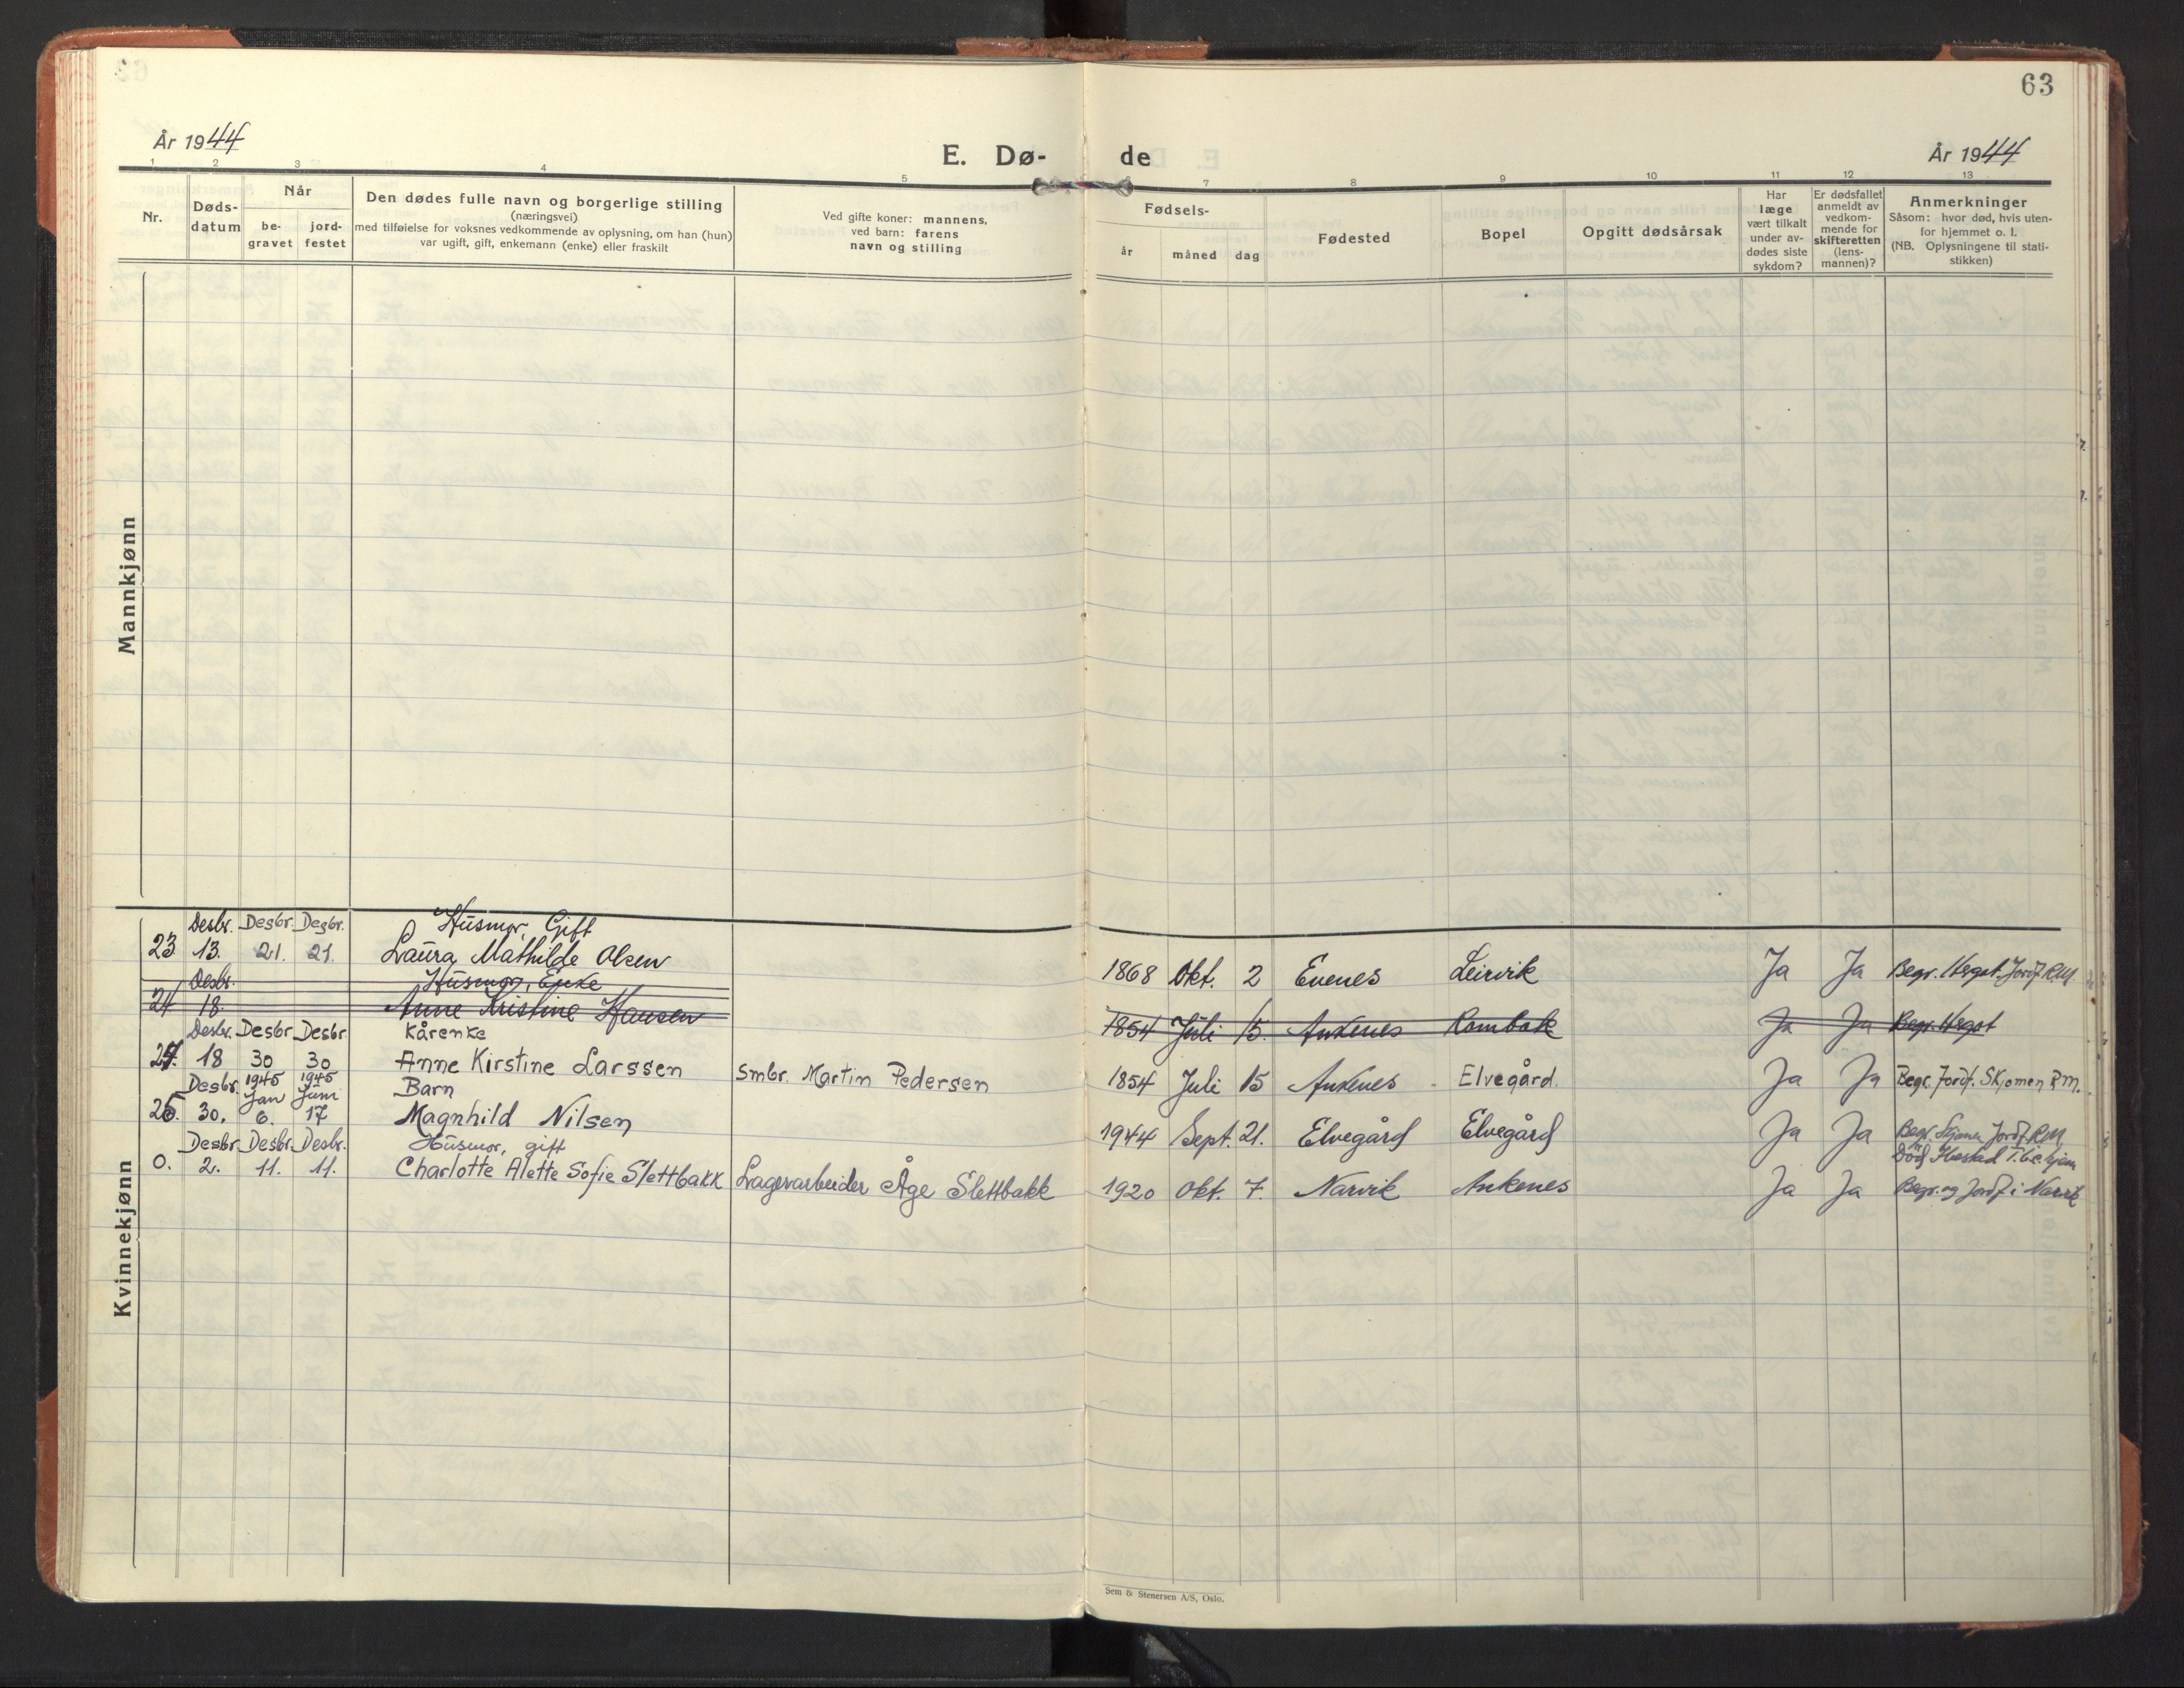 63
År 1944
E. Dø- de
År 1944
1 2 3 4 5 7 8 9 10 11 12 13
Nr.
Døds-
datum
Når
be-
gravet
jord-
festet
Den dødes fulle navn og borgerlige stilling
(næringsvei)
med tilføielse for voksnes vedkommende av oplysning, om han (hun)
var ugift, gift, enkemann (enke) eller fraskilt
Ved gifte koner: mannens,
ved barn: farens
navn og stilling
Fødsels-
år måned dag
Fødested
Bopel
Opgitt dødsårsak
Har
læge
vært tilkalt
under av-
dødes siste
sykdom?
Er dødsfallet
anmeldt av
vedkom-
mende for
skifteretten
(lens-
mannen)?
Anmerkninger
Såsom: hvor død, hvis uten-
for hjemmet o. l.
(NB. Oplysningene til stati-
stikken)
Mannkjønn
Kvinnekjønn
Desbr. Desbr. Desbr. Husmor, Gift
23 13. 21. 21. Laura Mathilde Olsen 1868 Okt. 2 Evenes Leirvik Ja Ja Begr. Hergot. Jordf. R.M.
Desbr. Husmor, Enke
24 18. Anne Kristine Hansen 1854 Juli 15. Ankenes Rombak Ja Ja Begr. Hergot
Desbr. Desbr Desbr Kårenke
24. 18 30 30 Anne Kirstine Larssen Smbr. Martin Pedersen 1854 Juli 15 Ankenes Elvegård. Ja Ja Begr. Jordf. Skjomen R.M.
Desbr. 1945 Jan 1945 Juni Barn
25. 30. 6. 17 Magnhild Nilsen 1944 Sept. 21. Elvegård Elvegård Ja Ja Begr. Skjomen Jordf. R.M.
Desbr. Desbr. Desbr. Husmor, gift
Død T.b.c. hjem
0. 2. 11. 11. Charlotte Alette Sofie Slettbakk Lagerarbeider Åge Slettbakk 1920 Okt. 7. Narvik Ankenes Ja Ja Begr. og Jordf. i Narvik
Sem & Stenersen A/S, Oslo.